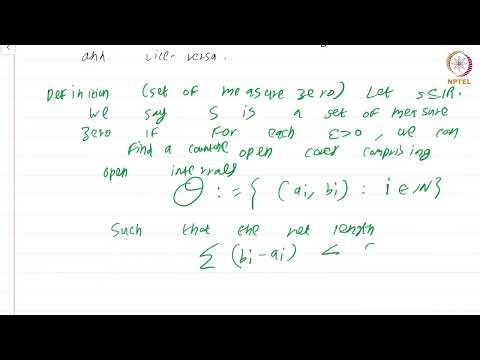 and vice-versa.
NPTEL
Definition (set of measure zero) Let S ⊆ ℝ.
We say S is a set of measure
zero if for each ε>0, we can
find a countable open cover comprising
open intervals
Θ := { (ai, bi) : i ∈ ℕ}
Such that the net length
∑ (bi - ai) <